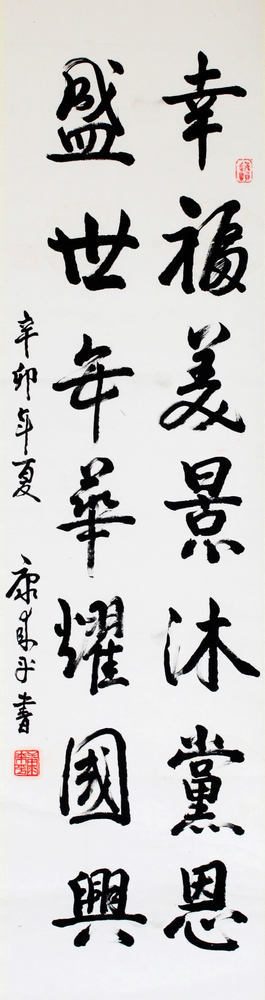 幸福美景沐黨恩
盛世年華耀國興
辛卯年夏
康來平書